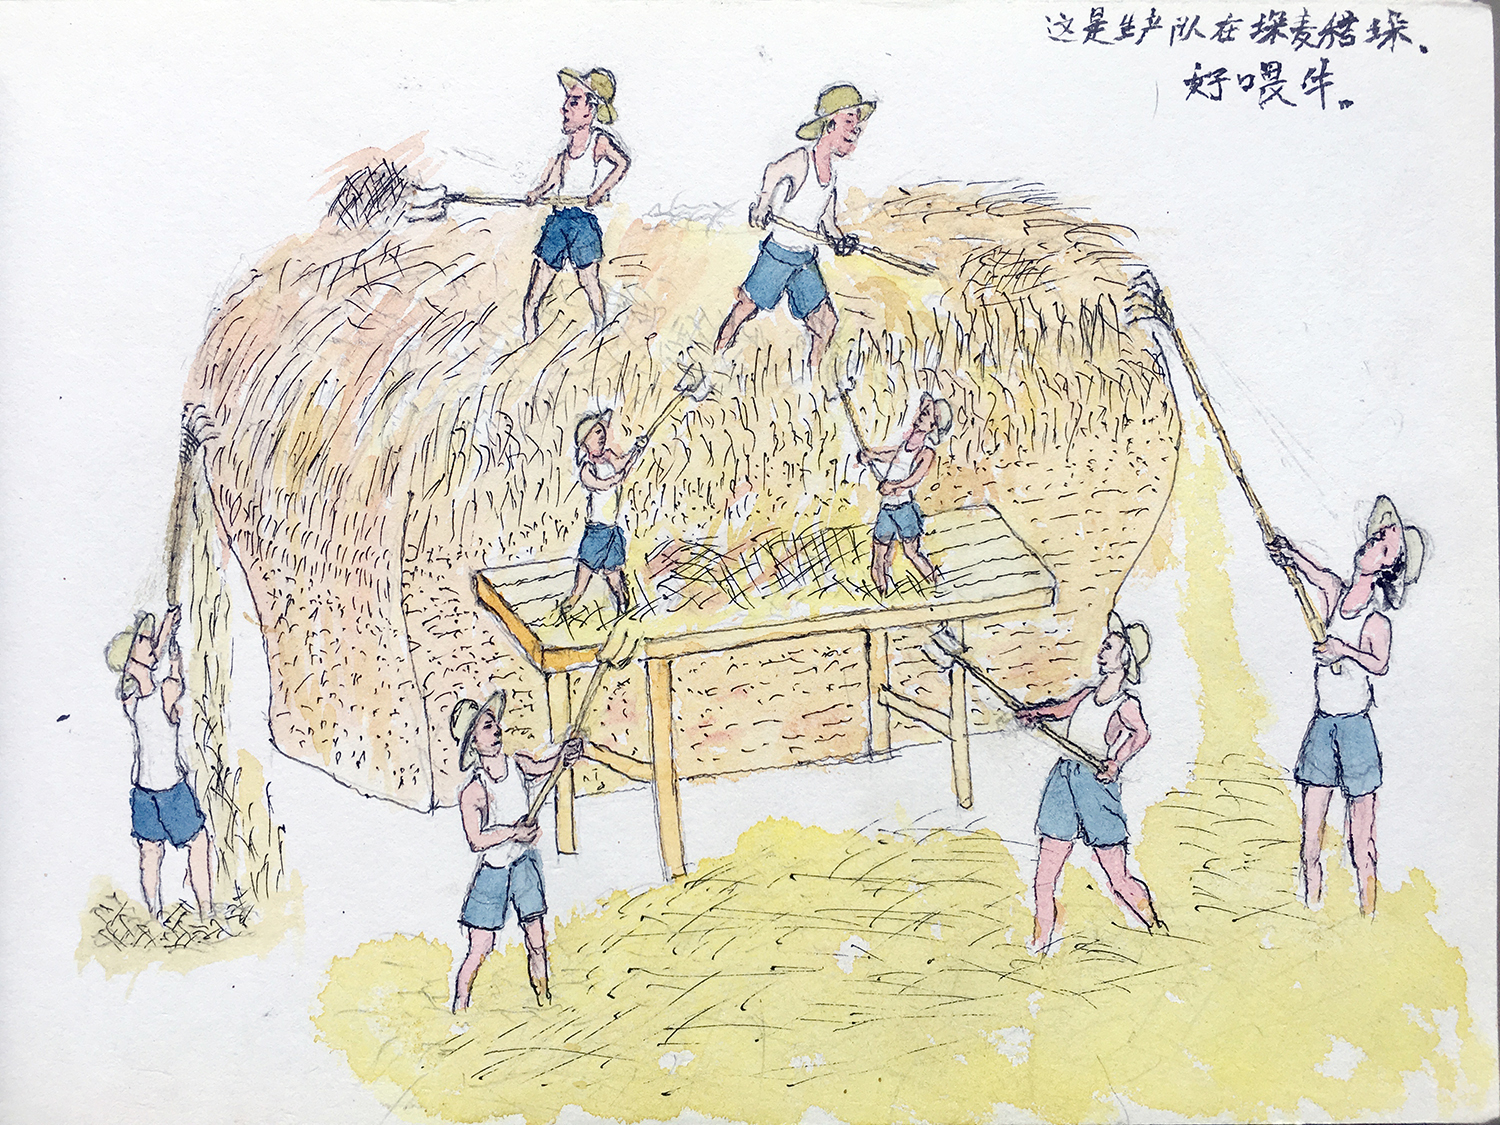 这是生产队在垛麦稭垛.
好喂牛.